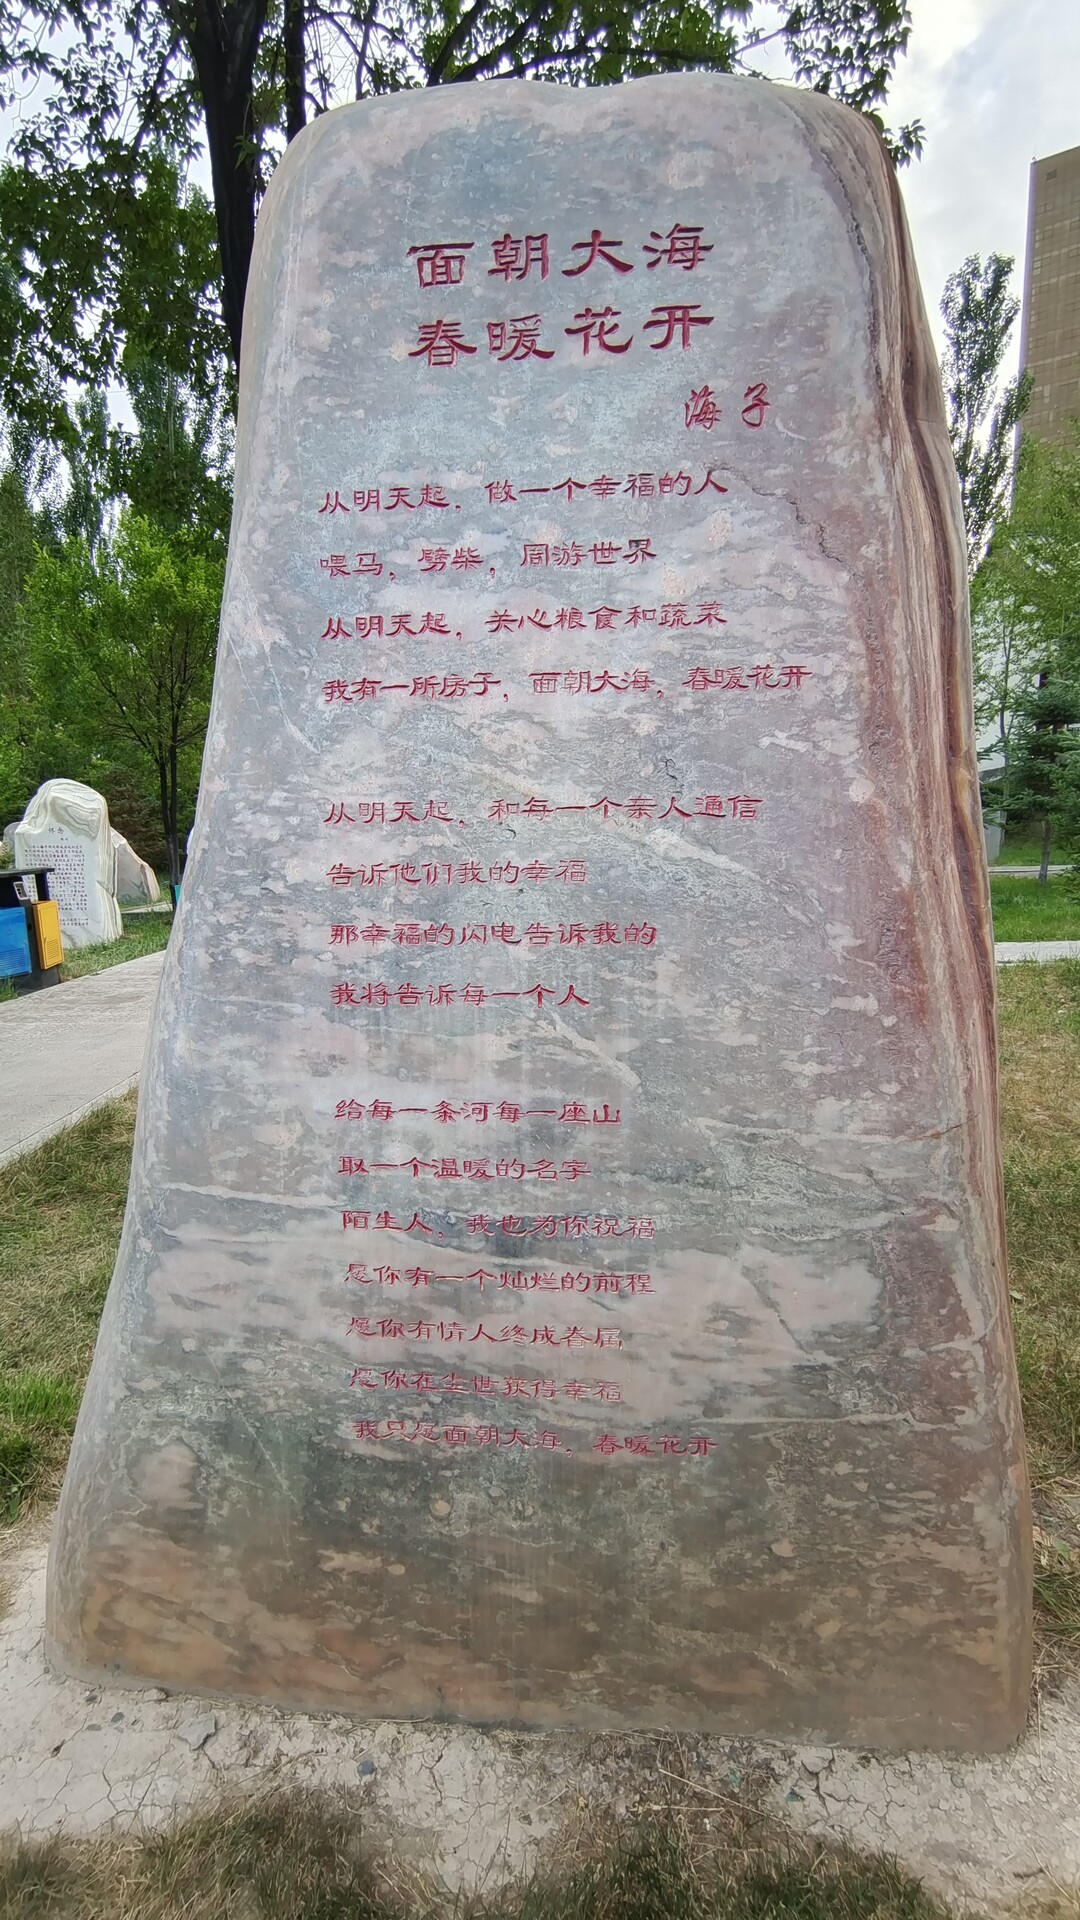 面朝大海
春暖花开
海子
从明天起，做一个幸福的人
喂马，劈柴，周游世界
从明天起，关心粮食和蔬菜
我有一所房子，面朝大海，春暖花开
从明天起，和每一个亲人通信
告诉他们我的幸福
那幸福的闪电告诉我的
我将告诉每一个人
给每一条河每一座山
取一个温暖的名字
陌生人，我也为你祝福
愿你有一个灿烂的前程
愿你有情人终成眷属
愿你在尘世获得幸福
我只愿面朝大海，春暖花开